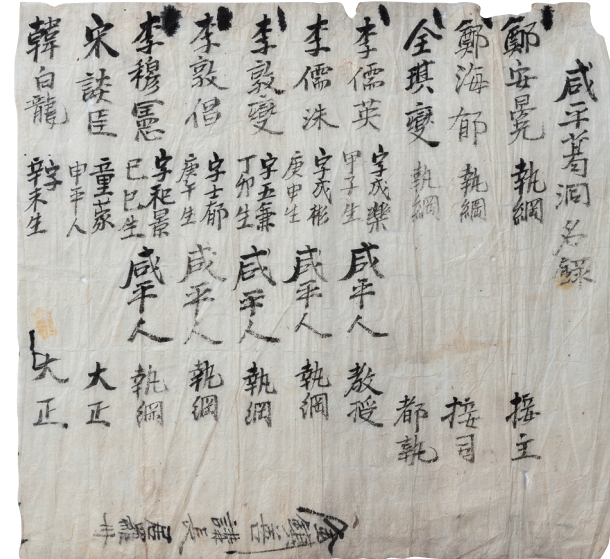 咸平葛洞名錄
鄭安冕 執綱 接主
鄭海郁 執綱 接司
全琪燮 執綱 都執
李儒英 字成樂 甲子生 咸平人 教授
李儒洙 字成彬 庚申生 咸平人 執綱
李敦燮 字五兼 丁卯生 咸平人 執綱
李敦倡 字士郁 庚午生 咸平人 執綱
李穆憲 字和景 己巳生 咸平人 執綱
宋談臣 童蒙 申平人 大正
韓白龍 字 辛未生 大正